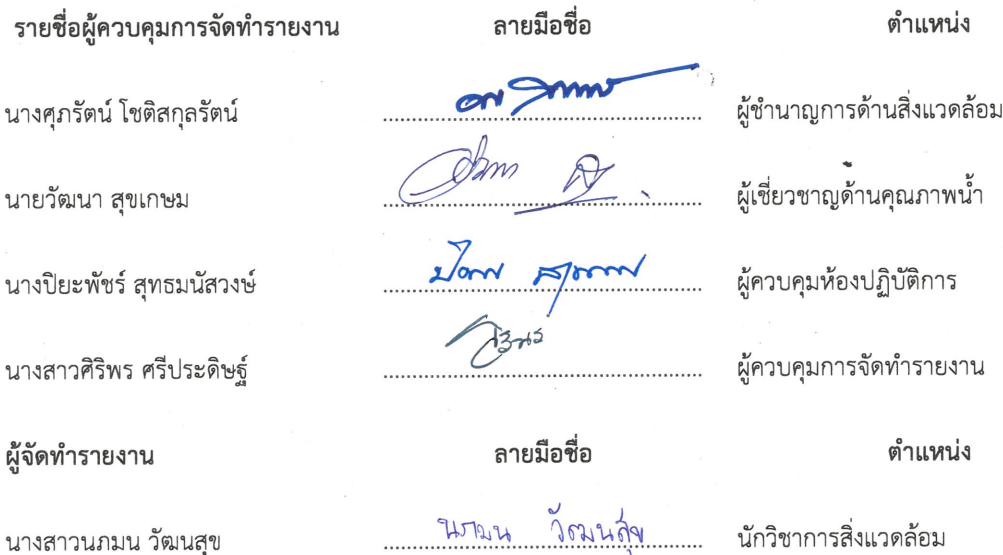 รายชื่อผู้ควบคุมการจัดทำรายงาน ลายมือชื่อ ตำแหน่ง
นางศุภรัตน์ โชติสกุลรัตน์ ผู้ชำนาญการด้านสิ่งแวดล้อม
นายวัฒนา สุขเกษม ผู้เชี่ยวชาญด้านคุณภาพน้ำ
นางปิยะพัชร์ สุทธมนัสวงษ์ ผู้ควบคุมห้องปฏิบัติการ
นางสาวศิริพร ศรีประดิษฐ์ ผู้ควบคุมการจัดทำรายงาน
ผู้จัดทำรายงาน ลายมือชื่อ ตำแหน่ง
นางสาวนภมน วัฒนสุข นภมน วัฒนสุข นักวิชาการสิ่งแวดล้อม